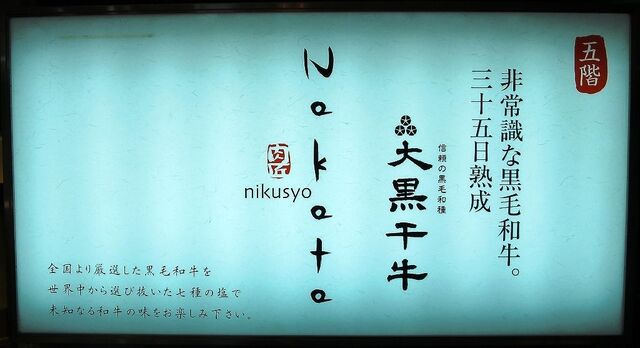 五階
非常識な黒毛和牛。
三十五日熟成
信頼の黒毛和種
大黒千牛
Nakata
肉匠
nikusyo
全国より厳選した黒毛和牛を
世界中から選び抜いた七種の塩で
未知なる和牛の味をお楽しみ下さい。